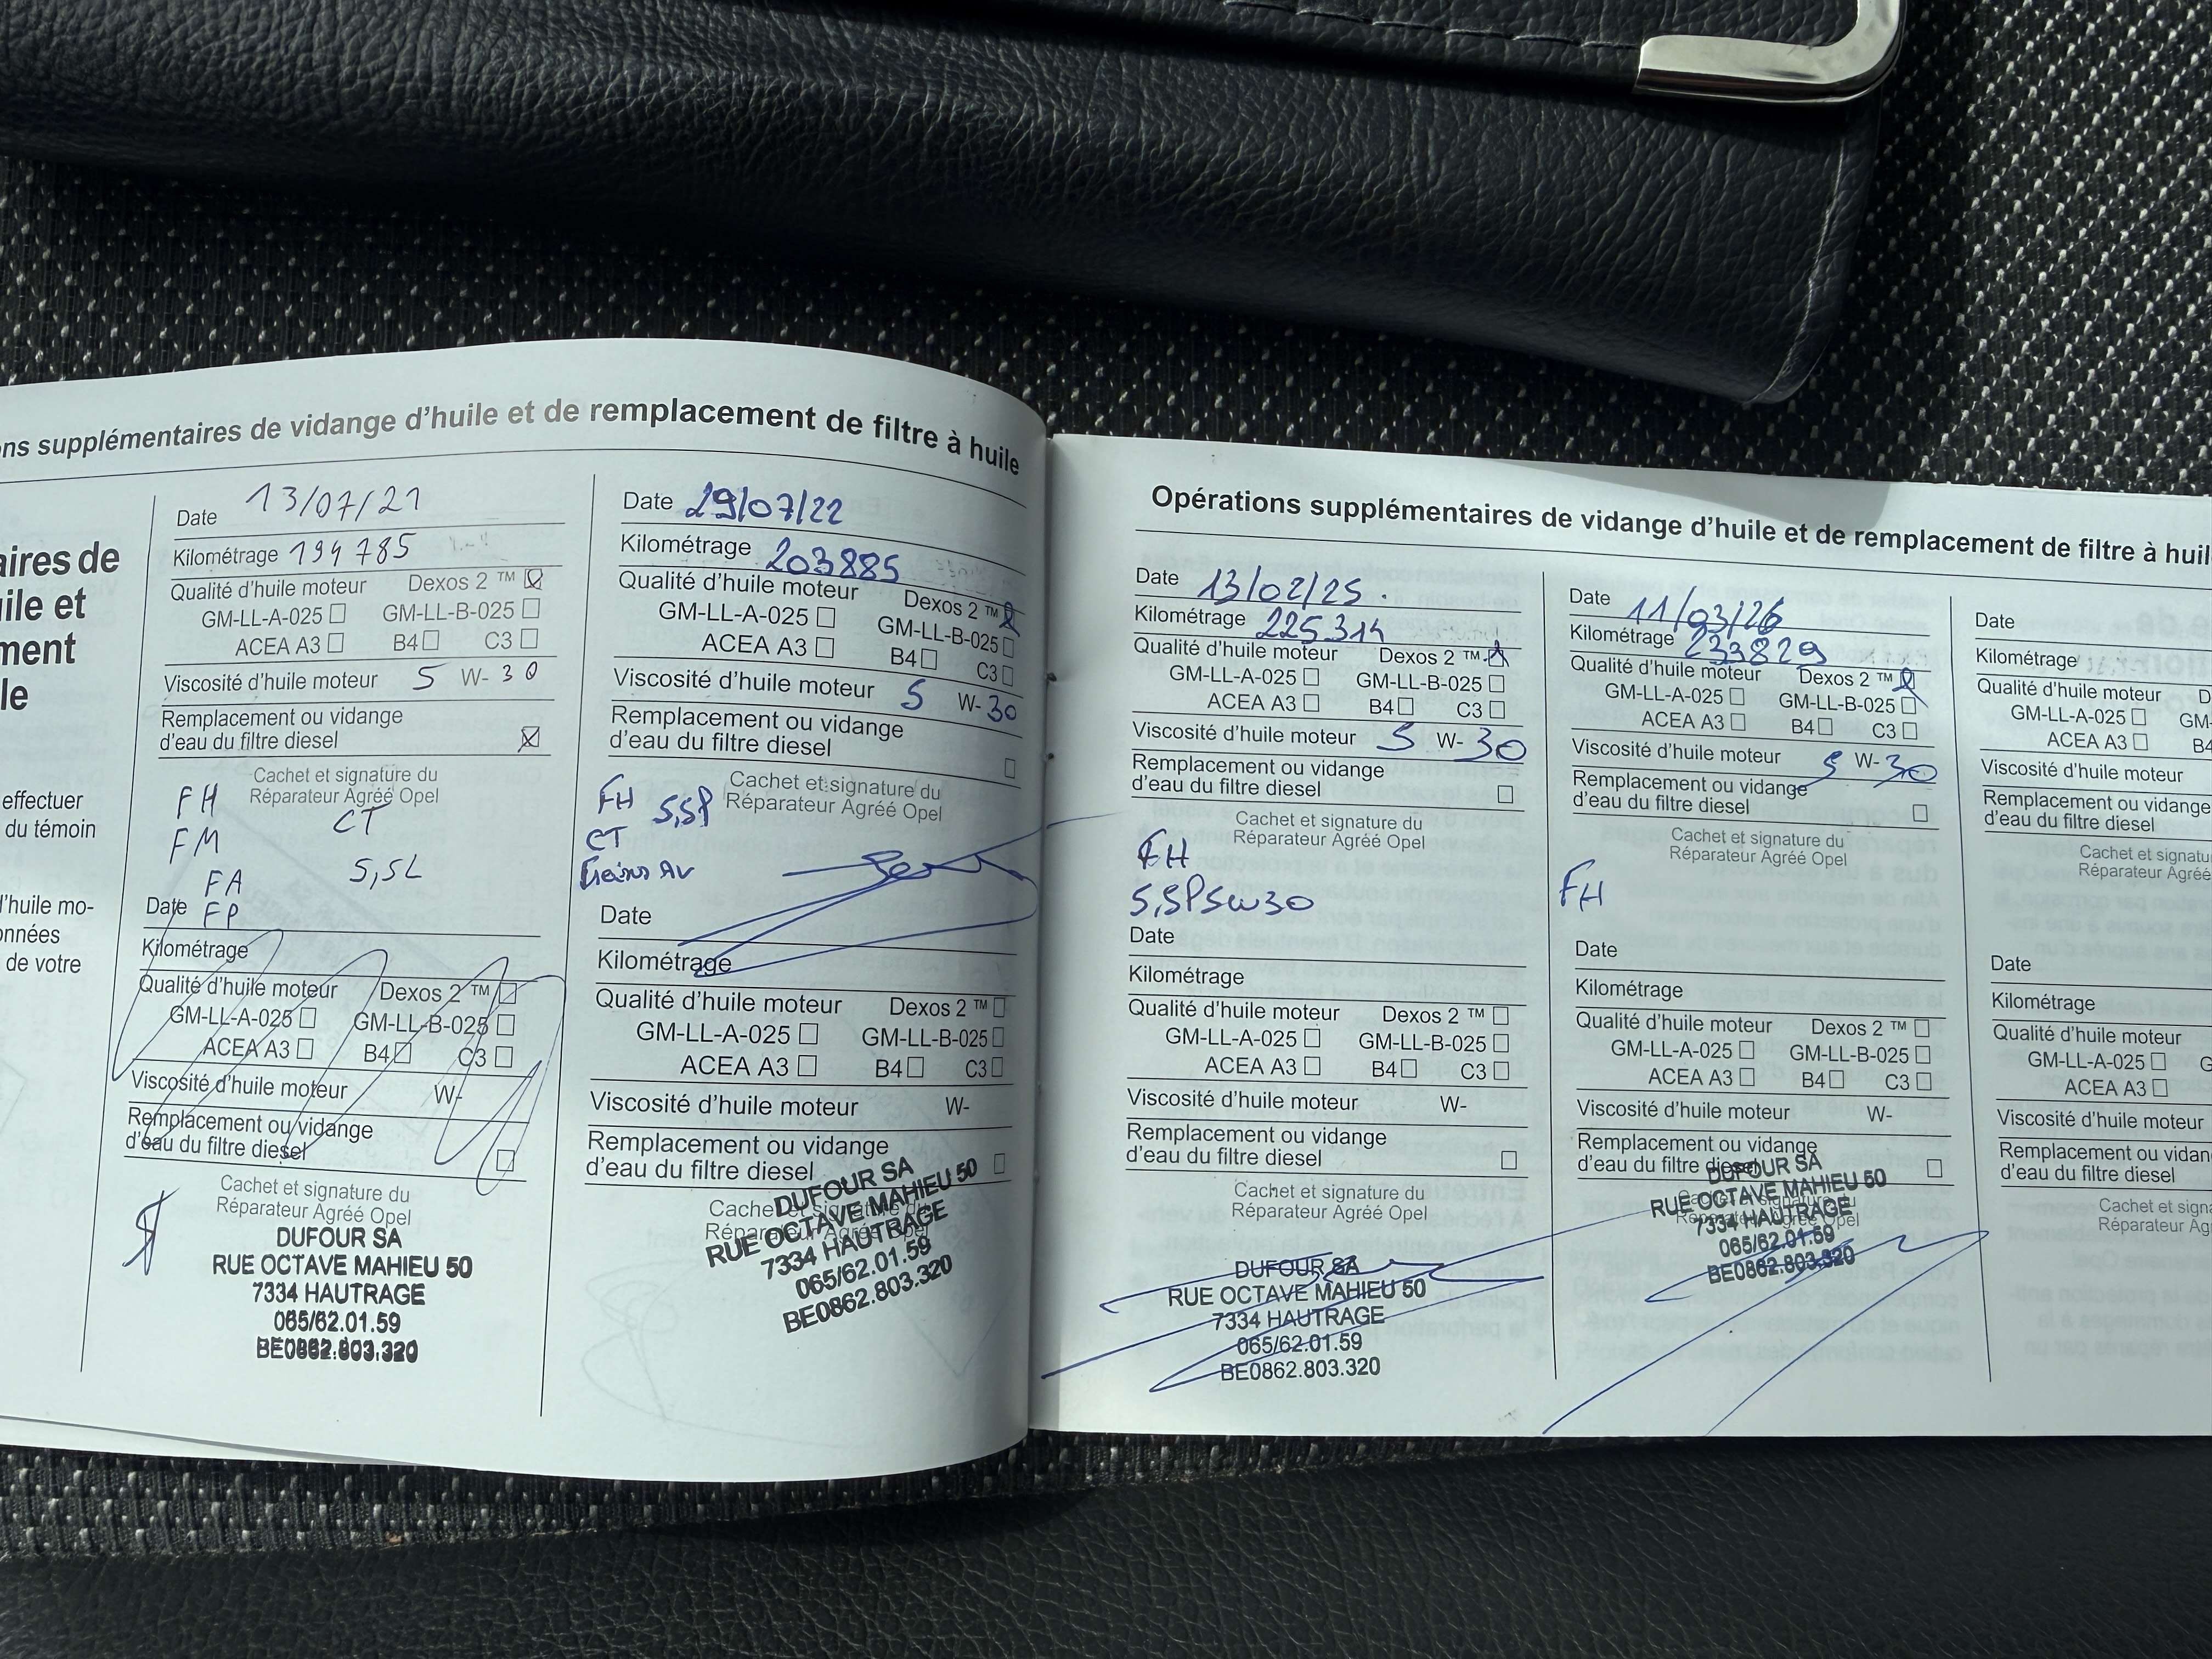 ons supplémentaires de vidange d'huile et de remplacement de filtre à huile
aires de
uile et
ment
le
effectuer
du témoin
d'huile mo-
onnées
de votre
Date 13/07/21
Kilométrage 194785
Qualité d'huile moteur Dexos 2 ™ ☒
GM-LL-A-025 ☐ GM-LL-B-025 ☐
ACEA A3 ☐ B4 ☐ C3 ☐
Viscosité d'huile moteur 5 W-30
Remplacement ou vidange
d'eau du filtre diesel ☒
Cachet et signature du
Réparateur Agréé Opel
FH
CT
FM
5,5L
FA
Date FP
Kilométrage
Qualité d'huile moteur Dexos 2 ™ ☐
GM-LL-A-025 ☐ GM-LL-B-025 ☐
ACEA A3 ☐ B4 ☐ C3 ☐
Viscosité d'huile moteur W-
Remplacement ou vidange
d'eau du filtre diesel ☐
Cachet et signature du
Réparateur Agréé Opel
DUFOUR SA
RUE OCTAVE MAHIEU 50
7334 HAUTRAGE
065/62.01.59
BE0862.803.320
Date 29/07/22
Kilométrage 203885
Qualité d'huile moteur Dexos 2 ™ ☒
GM-LL-A-025 ☐ GM-LL-B-025 ☐
ACEA A3 ☐ B4 ☐ C3 ☐
Viscosité d'huile moteur 5 W-30
Remplacement ou vidange
d'eau du filtre diesel ☐
Cachet et signature du
Réparateur Agréé Opel
FH 5,5P
CT
AV
Date
Kilométrage
Qualité d'huile moteur Dexos 2 ™ ☐
GM-LL-A-025 ☐ GM-LL-B-025 ☐
ACEA A3 ☐ B4 ☐ C3 ☐
Viscosité d'huile moteur W-
Remplacement ou vidange
d'eau du filtre diesel ☐
Cachet et signature du
Réparateur Agréé Opel
DUFOUR SA
RUE OCTAVE MAHIEU 50
7334 HAUTRAGE
065/62.01.59
BE0862.803.320
Opérations supplémentaires de vidange d'huile et de remplacement de filtre à huil
Date 13/02/25
Kilométrage 225314
Qualité d'huile moteur Dexos 2 ™ ☒
GM-LL-A-025 ☐ GM-LL-B-025 ☐
ACEA A3 ☐ B4 ☐ C3 ☐
Viscosité d'huile moteur 5 W-30
Remplacement ou vidange
d'eau du filtre diesel ☐
Cachet et signature du
Réparateur Agréé Opel
FH
5,5P5w30
Date
Kilométrage
Qualité d'huile moteur Dexos 2 ™ ☐
GM-LL-A-025 ☐ GM-LL-B-025 ☐
ACEA A3 ☐ B4 ☐ C3 ☐
Viscosité d'huile moteur W-
Remplacement ou vidange
d'eau du filtre diesel ☐
Cachet et signature du
Réparateur Agréé Opel
DUFOUR SA
RUE OCTAVE MAHIEU 50
7334 HAUTRAGE
065/62.01.59
BE0862.803.320
Date 11/03/26
Kilométrage 233829
Qualité d'huile moteur Dexos 2 ™ ☒
GM-LL-A-025 ☐ GM-LL-B-025 ☐
ACEA A3 ☐ B4 ☐ C3 ☐
Viscosité d'huile moteur 5 W-30
Remplacement ou vidange
d'eau du filtre diesel ☐
Cachet et signature du
Réparateur Agréé Opel
FH
Date
Kilométrage
Qualité d'huile moteur Dexos 2 ™ ☐
GM-LL-A-025 ☐ GM-LL-B-025 ☐
ACEA A3 ☐ B4 ☐ C3 ☐
Viscosité d'huile moteur W-
Remplacement ou vidange
d'eau du filtre diesel ☐
Cachet et signature du
Réparateur Agréé Opel
DUFOUR SA
RUE OCTAVE MAHIEU 50
7334 HAUTRAGE
065/62.01.59
BE0862.803.320
Date
Kilométrage
Qualité d'huile moteur D
GM-LL-A-025 ☐ GM-
ACEA A3 ☐ B4
Viscosité d'huile moteur
Remplacement ou vidange
d'eau du filtre diesel
Cachet et signatu
Réparateur Agréé
Date
Kilométrage
Qualité d'huile moteur
GM-LL-A-025 ☐ G
ACEA A3 ☐
Viscosité d'huile moteur
Remplacement ou vidan
d'eau du filtre diesel
Cachet et sign
Réparateur Ag